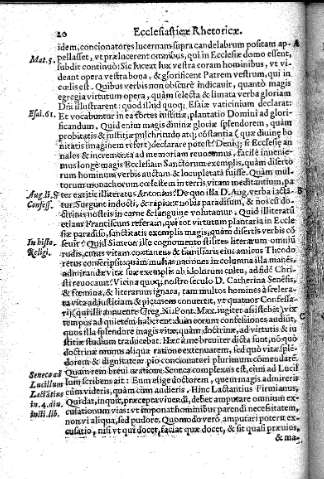 20 Ecclesiasticæ Rhetoricæ.
idem, concionatores lucernam supra candelabrum positam ap-
Mat. 5. pellasset, vt præluceret omnibus, qui in Ecclesiæ domo essent,
subdit continuò: Sic luceat lux vestra coram hominibus, vt vi-
deant opera vestra bona, & glorificent Patrem vestrum, qui in
cœlis est. Quibus verbis non obscurè indicauit, quantò magis
egregia virtutum opera, quàm selecta & limata verba gloriam
Dei illustrarent: quod illud quoq; Esaiæ vaticinium declarat:
Esai. 61. Et vocabuntur in ea fortes iustitiæ, plantatio Domini ad glori-
ficandum. Quid enim magis diuinæ gloriæ splendorem, quàm
probitatis & iustitiæ
nitatis imaginem declarare potest? Deniq; si Ecclesiæ an-
nales & incrementa ad memoriam reuocemus, facilè inuenie-
mus longè magis Ecclesiam Sanctorum exemplis, quàm diserto
rum hominum verbis auctam & locupletatã fuisse. Quàm mul-
torum monachorum cœlestem in terris vitam meditantium, pa-
Aug. li. 8. ter extitit illiteratus Antonius? De quo illa D. Aug. verba iacta-
Confess. tur: Surgunt indocti, & rapiunt nobis paradisum, & nos cū do-
ctrinis nostris in carne & sanguine volutamur. Quid illiteratus
etiam Franciscus referam, qui tot virtutum plantaria in Eccle-
siæ paradiso, sanctitatis exemplis magis, quàm disertis verbis cō
In histo. seuit? Quid Simeon ille cognomento stilites literarum omniū
Religi. rudis, cuius vitam
retus conscripsit: quàm multas nationes in columna illa manēs
admirandæ vitæ suæ exemplis ab idolorum cultu, ad fidē Chri-
sti reuocauit? Vicina quoq; nostro seculo D. Catherina Senēsis,
& fœmina, & literarum ignara, tam multos homines à scelera-
ta vita ad iustitiam & pietatem conuertit, vt quatuor Confessa-
rij,
tempus ad quietem haberent: adeò eorum confessiones audiunt,
quos illa splendore magis vitæ, quàm doctrinæ, ad virtutis & iu
stitiæ studium traducebat. Hæc à me breuiter dicta sunt, nō quò
doctrinæ munus aliqua ratione extenuarem, sed quò vitæ splē-
dorem & dignitatem pio concionatori plurimum cōmendarē.
Seneca ad Quam rem breui oratione Seneca complexus est, cùm ad Lucil
Lucillum lum scribens ait: Eum elige doctorem, quem magis admireris
Lactātius cùm videris, quàm cùm audieris. Hinc Lactantius Firmianus,
in. 4. diu. Quidat, inquit, præcepta viuendi, debet amputare omnium ex-
insti. lib. cusationum vias: vt imponat hominibus parendi necessitatem,
non vi aliqua, sed pudore. Quomodo verò amputari poterit ex-
cusatio, nisi vt qui docet, faciat quæ docet, & sit quasi præuius,
& ma-